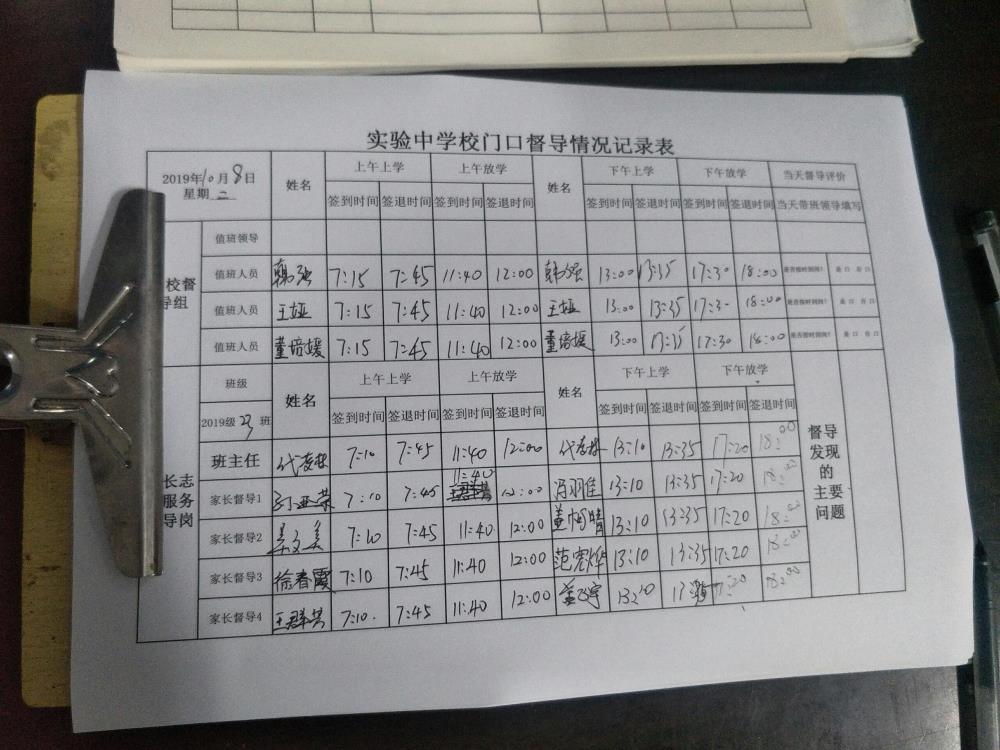 实验中学校门口督导情况记录表
2019年10月8日 星期二 姓名 上午上学 上午放学 姓名 下午上学 下午放学 当天督导评价
签到时间 签退时间 签到时间 签退时间 签到时间 签退时间 签到时间 签退时间 当天带班领导填写
校督导组
值班领导
值班人员 韩强 7:15 7:45 11:40 12:00 韩强 13:00 13:35 17:30 18:00 是否按时到岗? 是口 否口
值班人员 王娅 7:15 7:45 11:40 12:00 王娅 13:00 13:35 17:3 18:00 是否按时到岗? 是口 否口
值班人员 董培媛 7:15 7:45 11:40 12:00 董培媛 13:00 13:35 17:30 18:00 是否按时到岗? 是口 否口
长志服务导岗
班级 姓名 上午上学 上午放学 姓名 下午上学 下午放学
2019级23班 签到时间 签退时间 签到时间 签退时间 签到时间 签退时间 签到时间 签退时间
督导发现的主要问题
班主任 7:10 7:45 11:40 12:00 13:10 13:35 17:20 18:00
家长督导1 7:10 7:45 11:40 12:00 冯羽佳 13:10 13:35 17:20 18:00
家长督导2 7:10 7:45 11:40 12:00 13:10 13:35 17:20 18:00
家长督导3 徐春霞 7:10 7:45 11:40 12:00 13:10 13:35 17:20 18:00
家长督导4 7:10. 7:45 11:40 12:00 13:10 18:00